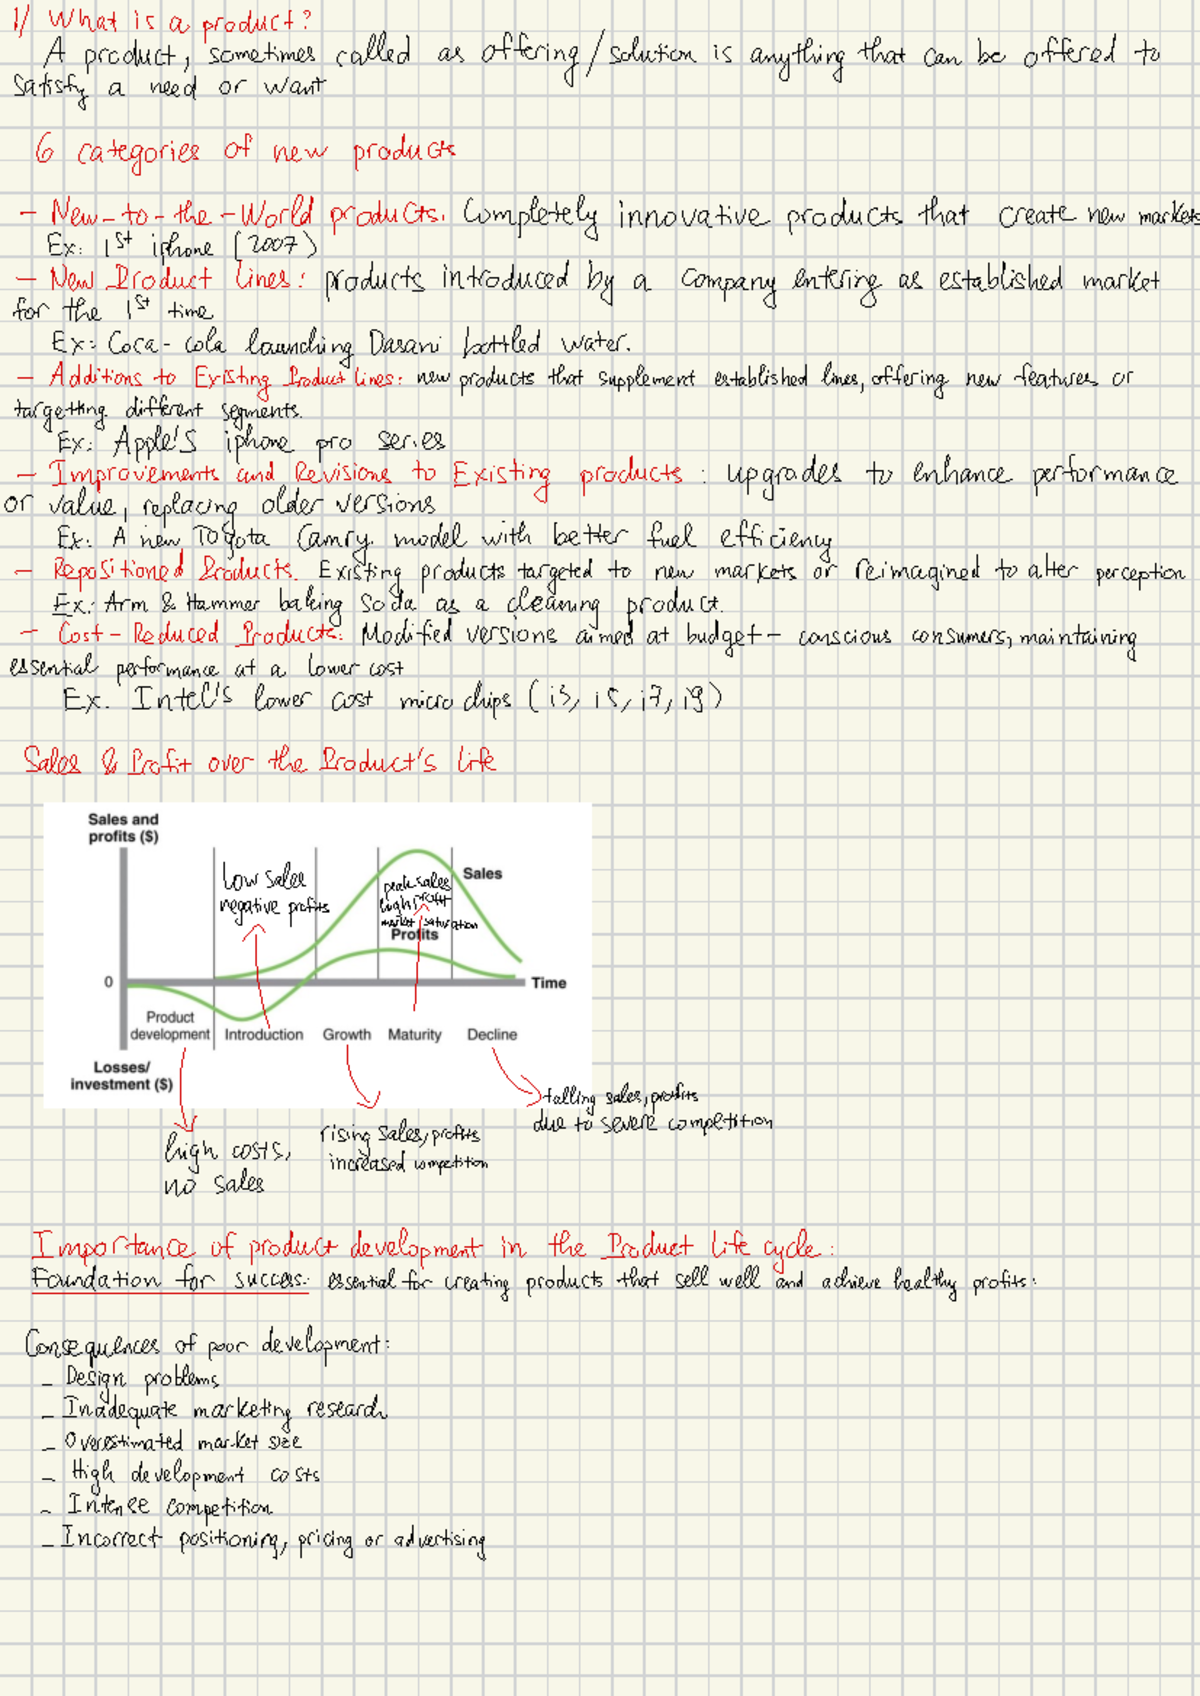 1/ What is a product?
A product, sometimes called as offering/solution is anything that can be offered to
satisfy a need or want
6 categories of new products
- New-to-the-World products. Completely innovative products that create new markets
Ex: 1st iphone (2007)
- New Product Lines: products introduced by a company entering as established market
for the 1st time
Ex: Coca-cola launching Dasani bottled water.
- Additions to Existing Product Lines: new products that supplement established lines, offering new features or
targetting different segments.
Ex: Apple's iphone pro series
- Improvements and Revisions to Existing products: upgrades to enhance performance
or value, replacing older versions
Ex: A new Toyota Camry model with better fuel efficiency
- Repositioned Products. Existing products targeted to new markets or reimagined to alter perception
Ex: Arm & Hammer baking soda as a cleaning product.
- Cost-Reduced Products: Modified versions aimed at budget-conscious consumers, maintaining
essential performance at a lower cost
Ex. Intel's lower cost micro chips (i3, i5, i7, i9)
Sales & Profit over the Product's Life
Sales and
profits ($)
low sales
negative profits
peak sales
high profit
market saturation
Sales
Profits
0
Time
Product
development
Introduction
Growth
Maturity
Decline
Losses/
investment ($)
high costs,
no sales
rising sales, profits
increased competition
falling sales, profits
due to severe competition
Importance of product development in the Product Life cycle:
Foundation for success: essential for creating products that sell well and achieve healthy profits:
Consequences of poor development:
- Design problems
- Inadequate marketing research
- Overestimated market size
- High development costs
- Intense competition
- Incorrect positioning, pricing or advertising